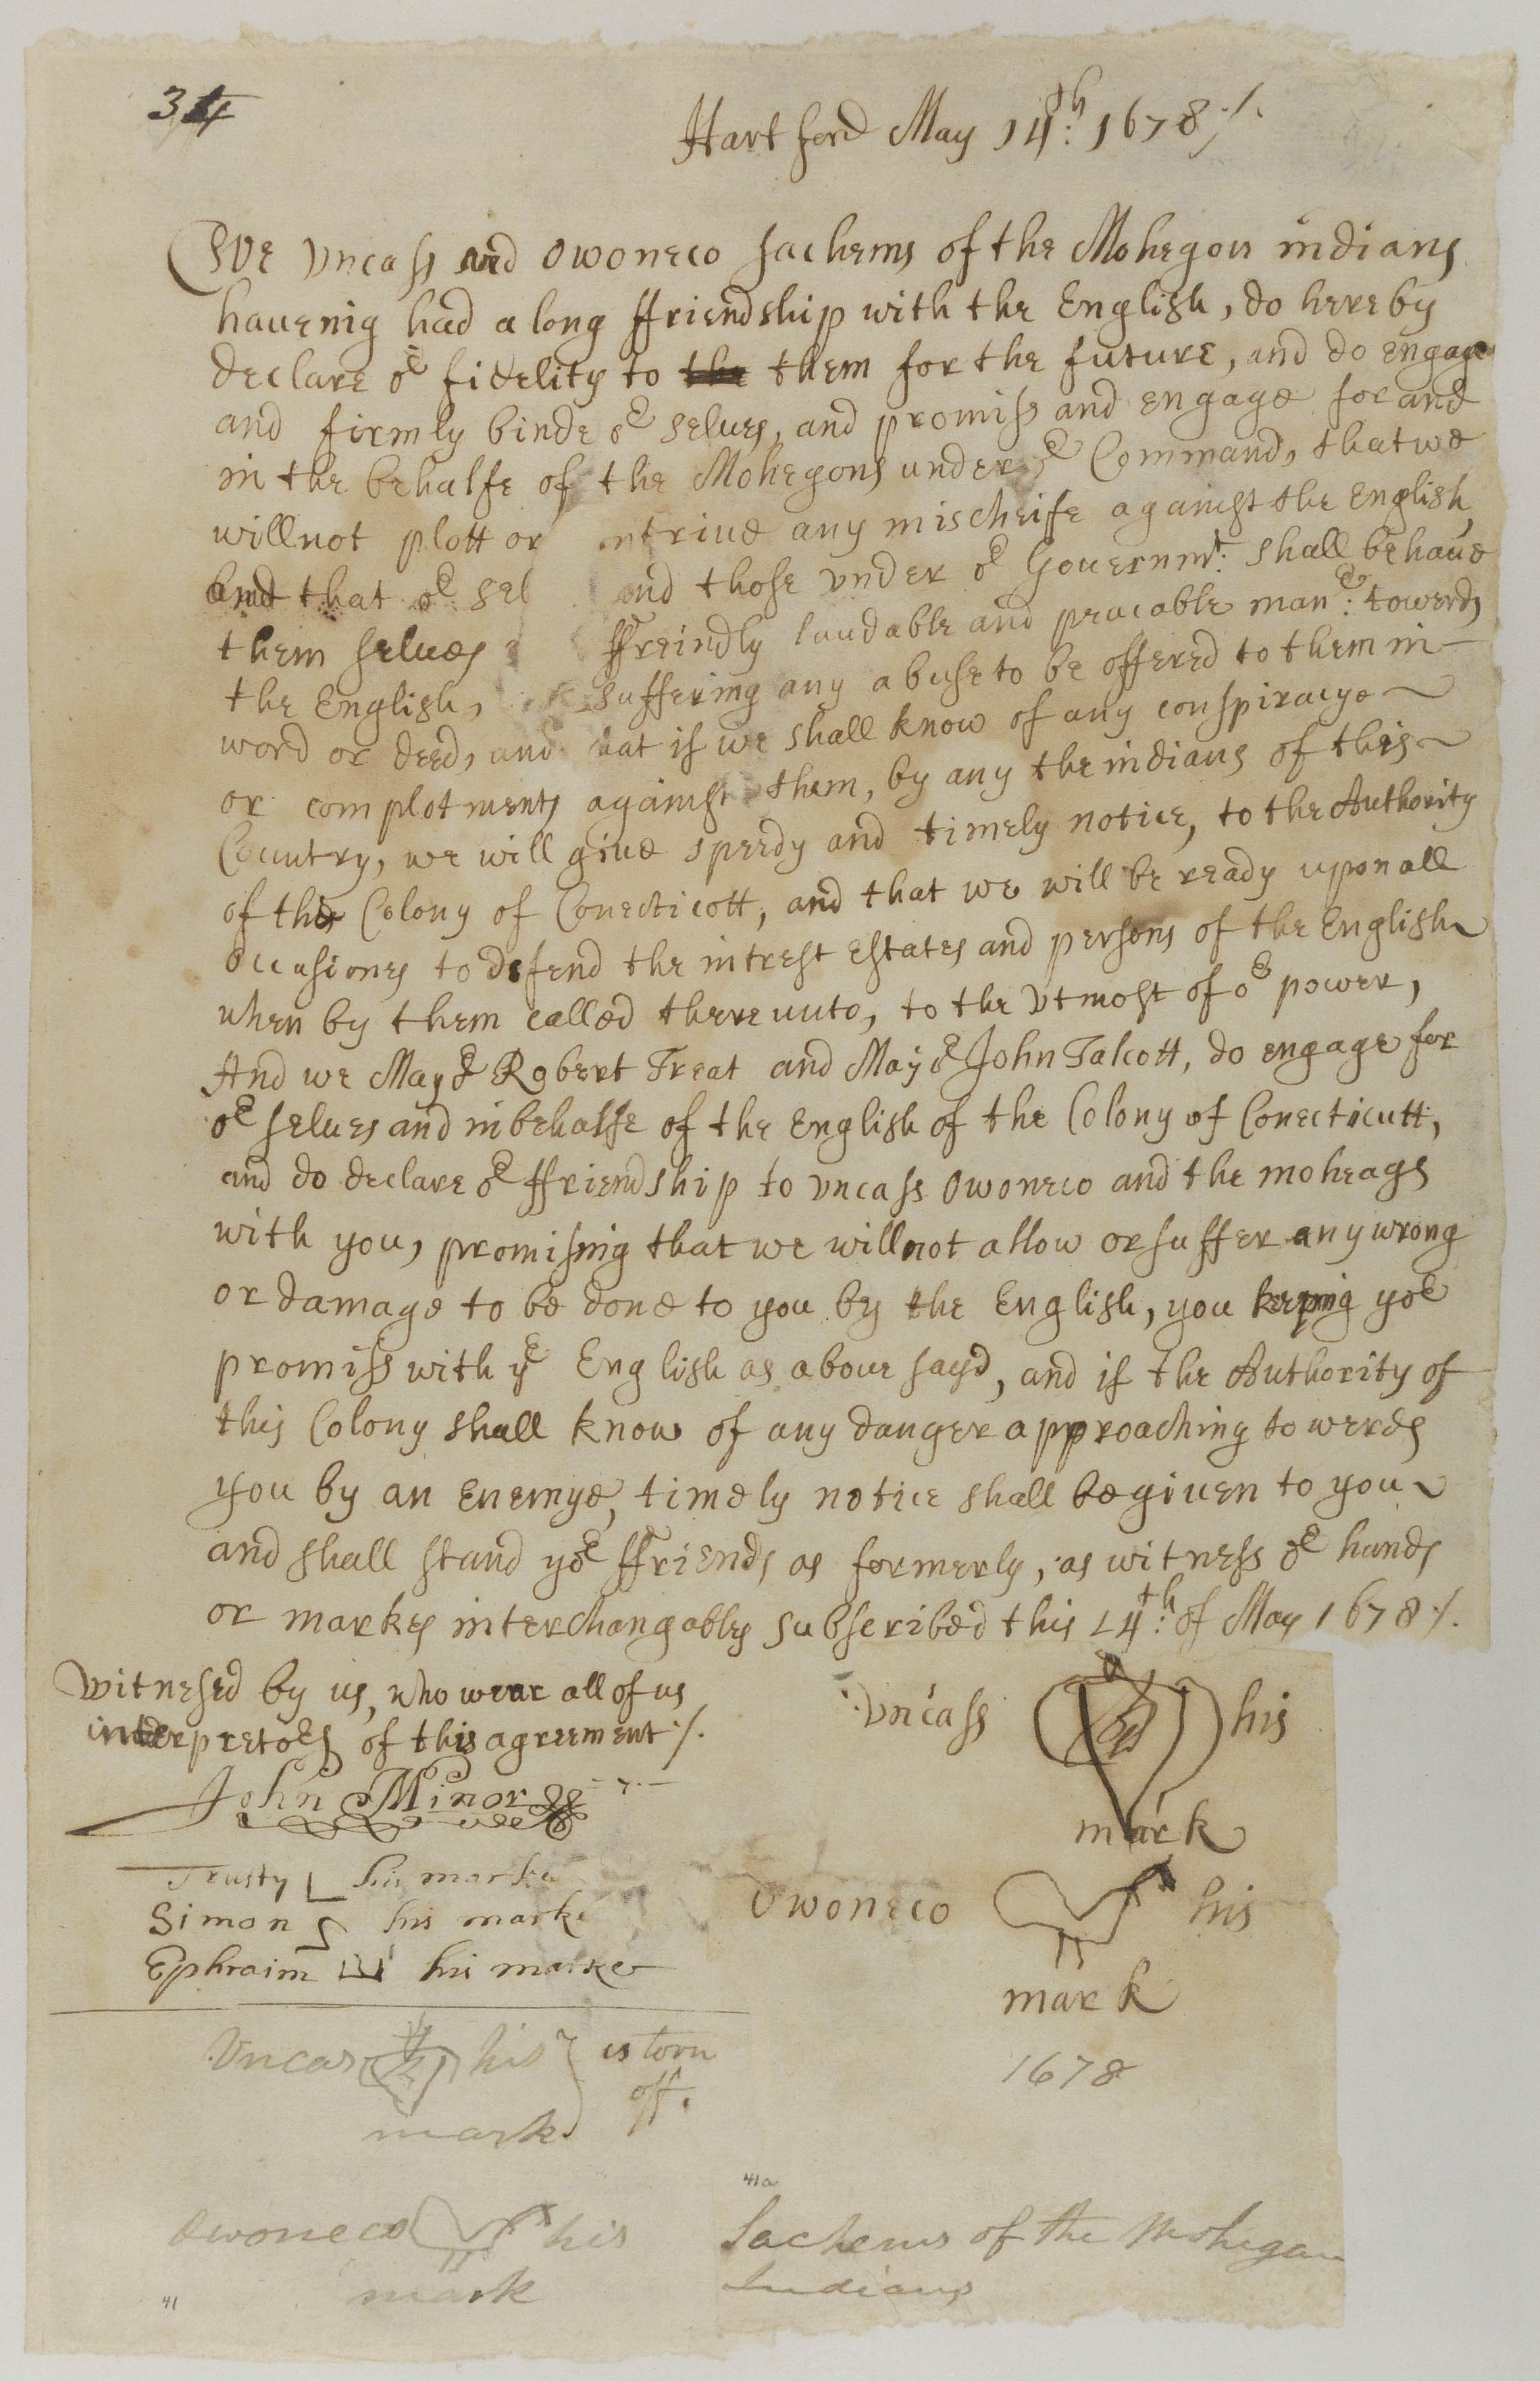 34
Hartford May 14th: 1678 ./.
We Vncass and Owoneco sachems of the Mohegon indians
haueing had a long ffriendship with the English, do hereby
declare or fidelity to the them for the future, and do engage
and firmly binde or selues, and promiss and engage for and
in the behalfe of the Mohegons under or Command, that we
will not plott or ntriue any mischeife against the English,
and that or sel and those vnder or Gouernmt: shall behaue
them selues ffreindly laudable and peacable maner: towerds
the English, suffering any abuse to be offered to them in
word or deed, and hat if we shall know of any conspiracye
or complotments against them, by any the indians of this
Country, we will giue speedy and timely notice, to the Authority
of this Colony of Conecticott, and that we will be ready upon all
occasiones to defend the intrest estates and persons of the English
when by them called thereunto, to the Vtmost of or power,
And we Mayr Robert Treat and Majr John Talcott, do engage for
or selues and in behalfe of the English of the Colony of Conecticutt,
and do declare or ffriendship to vncass Owoneco and the moheags
with you, promising that we will not allow or suffer any wrong
or damage to be done to you by the English, you keeping yor
promiss with ye English as aboue sayd, and if the Authority of
this Colony shall know of any danger approaching towerds
you by an Enemye, timely notice shall be giuen to you
and shall stand yor ffriends as formerly, as witness or hands
or markes interchangably subscribed this 14th: of May 1678 ./.
Witnesed by us, who wear all of us
interpretors of this agreement ./.
John Minor
Trusty his marke
Simon his marke
Ephraim his marke
Vncass his
mark
Owoneco his
mark
1678
Vncas his is torn
off.
mark
Owoneco his
mark
41a
Sachems of the Mohegan
Indians
41